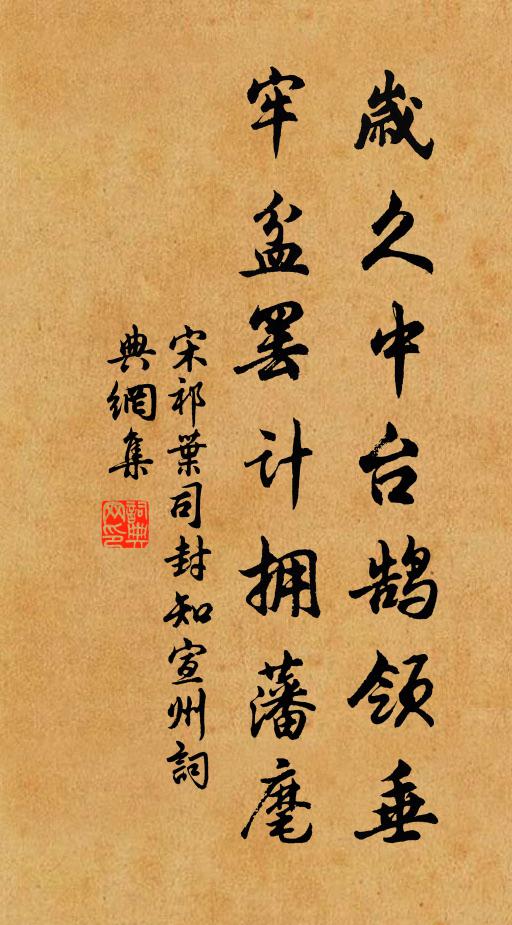 歲久中台鹄领垂
牢盆罢计拥藩麾
宋祁葉司封知宣州詞
典網集
詞典網印